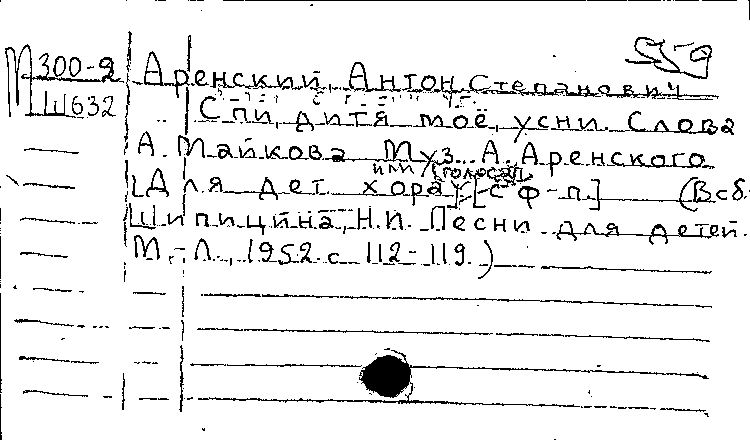 559
М300-2 Аренский, Антон Степанович
Ш632 Спи, дитя моё, усни. Слова
А. Майкова Муз. А. Аренского
или голоса
[Для дет. хора] [с ф-п.] (В сб.
Шипицина, Н.П. Песни для детей.
М.-Л., 1952. с 112-119.)